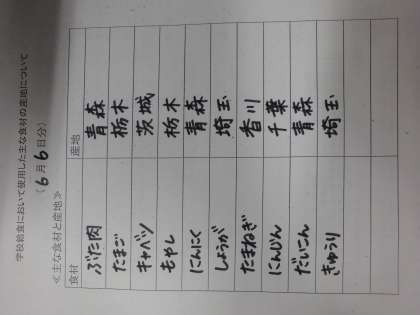 学校給食において使用した主な食材の産地について
(6月6日分)
≪主な食材と産地≫
食材 産地
ぶた肉 青森
たまご 栃木
キャベツ 茨城
もやし 栃木
にんにく 青森
しょうが 埼玉
たまねぎ 香川
にんじん 千葉
だいこん 青森
きゅうり 埼玉